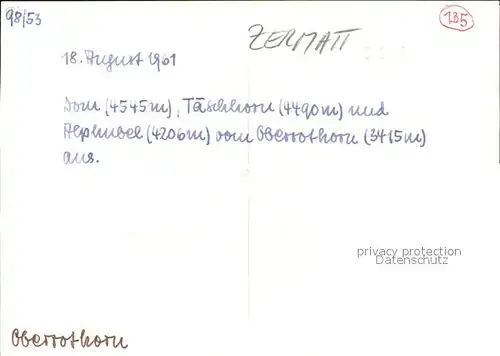 98/53
ZERMATT
135
18. August 1961
Dom (4545m), Täschhorn (4490m) und
Alphubel (4206m) vom Oberrothorn (3415m)
aus.
privacy protection
Datenschutz
Oberrothorn